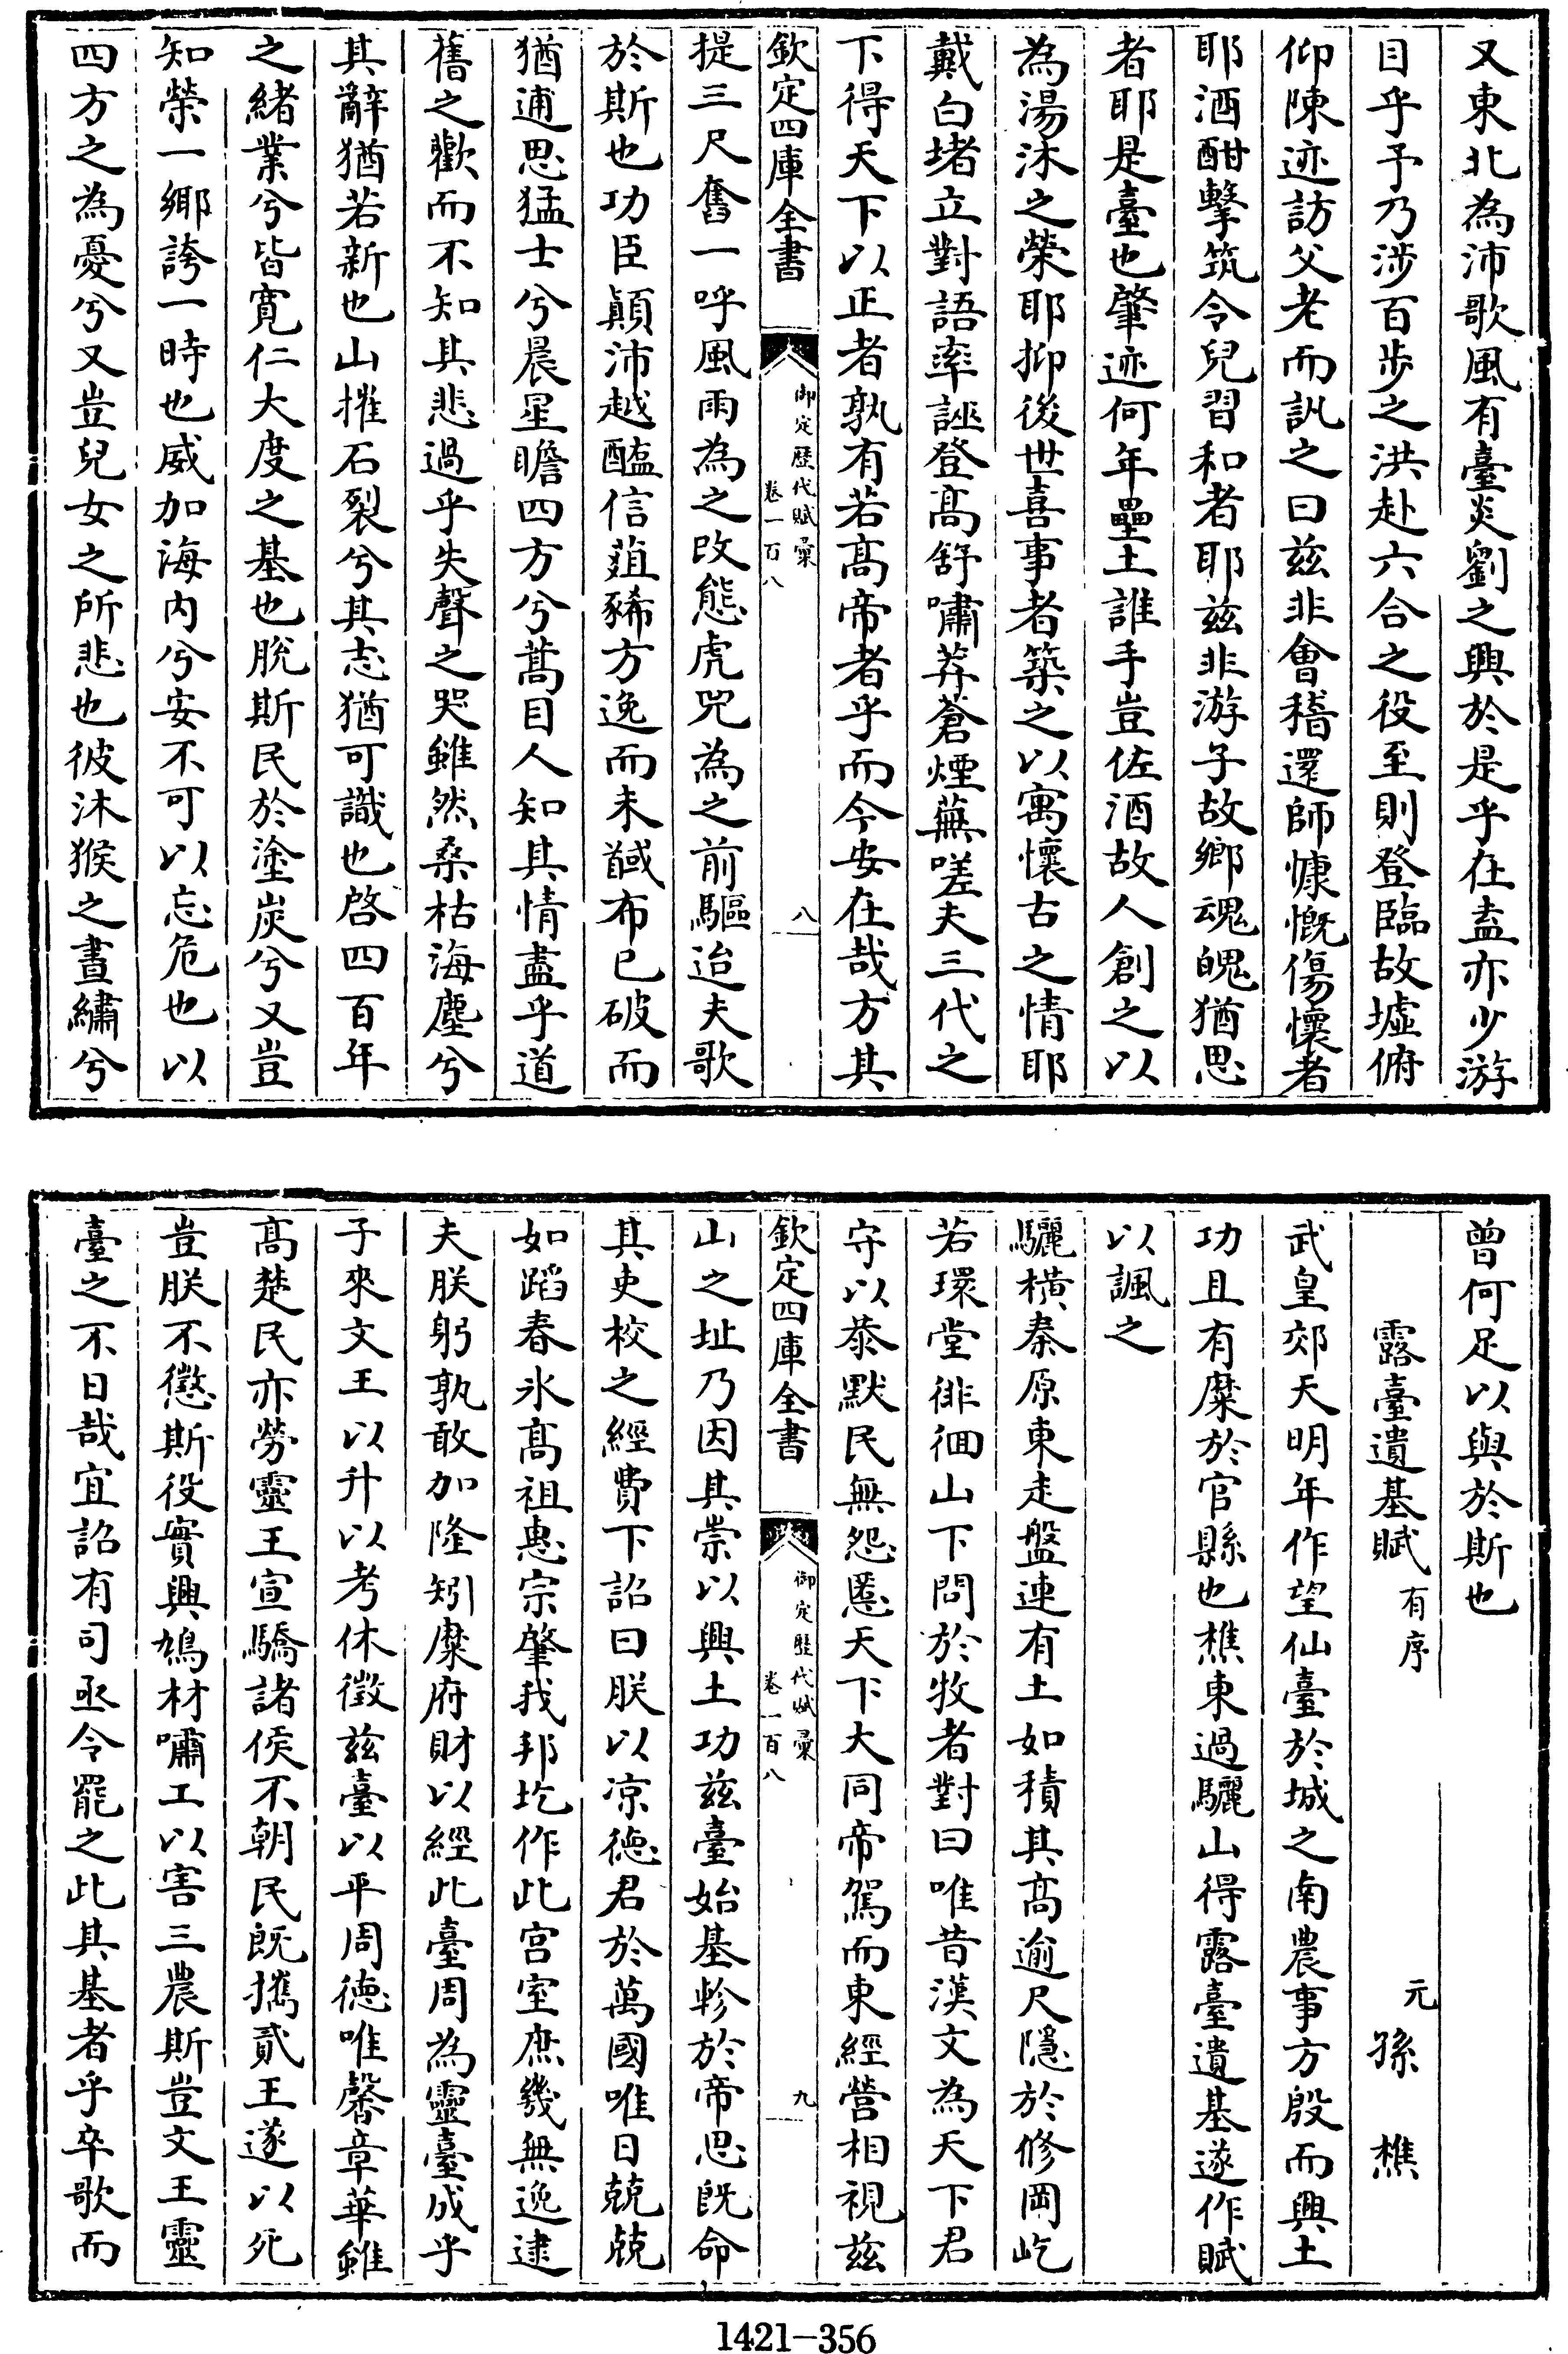 又東北為沛歌風有臺炎劉之興於是乎在盍亦少游
目乎予乃涉百步之洪赴六合之役至則登臨故墟俯
仰陳迹訪父老而訊之曰兹非會稽還師慷慨傷懷者
耶酒酣擊筑令兒習和者耶兹非游子故鄉魂魄猶思
者耶是臺也肇迹何年壘土誰手豈佐酒故人創之以
為湯沐之榮耶抑後世喜事者築之以寓懷古之情耶
戴白堵立對語率誣登高舒嘯莽蒼煙蕪嗟夫三代之
下得天下以正者孰有若高帝者乎而今安在哉方其
欽定四庫全書
御定歷代賦彙
卷一百八
八
提三尺奮一呼風雨為之改態虎兕為之前驅迨夫歌
於斯也功臣顛沛越醢信葅豨方逸而未馘布已破而
猶逋思猛士兮晨星瞻四方兮蒿目人知其情盡乎道
舊之歡而不知其悲過乎失聲之哭雖然桑枯海塵兮
其辭猶若新也山摧石裂兮其志猶可識也啓四百年
之緒業兮皆寛仁大度之基也脫斯民於塗炭兮又豈
知榮一鄉誇一時也威加海内兮安不可以忘危也以
四方之為憂兮又豈兒女之所悲也彼沐猴之晝繡兮
曾何足以與於斯也
露臺遺基賦 有序 元 孫 樵
武皇郊天明年作望仙臺於城之南農事方殷而興土
功且有糜於官縣也樵東過驪山得露臺遺基遂作賦
以諷之
驪橫秦原東走盤連有土如積其高逾尺隱於修岡屹
若環堂徘徊山下問於牧者對曰唯昔漢文為天下君
守以恭默民無怨慝天下大同帝駕而東經營相視兹
欽定四庫全書
御定歷代賦彙
卷一百八
九
山之址乃因其崇以興土功兹臺始基軫於帝思既命
其吏校之經費下詔曰朕以凉德君於萬國唯日兢兢
如蹈春氷高祖惠宗肇我邦圪作此宫室庶幾無逸逮
夫朕躬孰敢加隆矧糜府財以經此臺周為靈臺成乎
子來文王以升以考休徵兹臺以平周德唯馨章華雖
高楚民亦勞靈王宣驕諸侯不朝民既攜貳王遂以死
豈朕不懲斯役實興鳩材嘯工以害三農斯豈文王靈
臺之不日哉宜詔有司亟令罷之此其基者乎卒歌而
1421-356